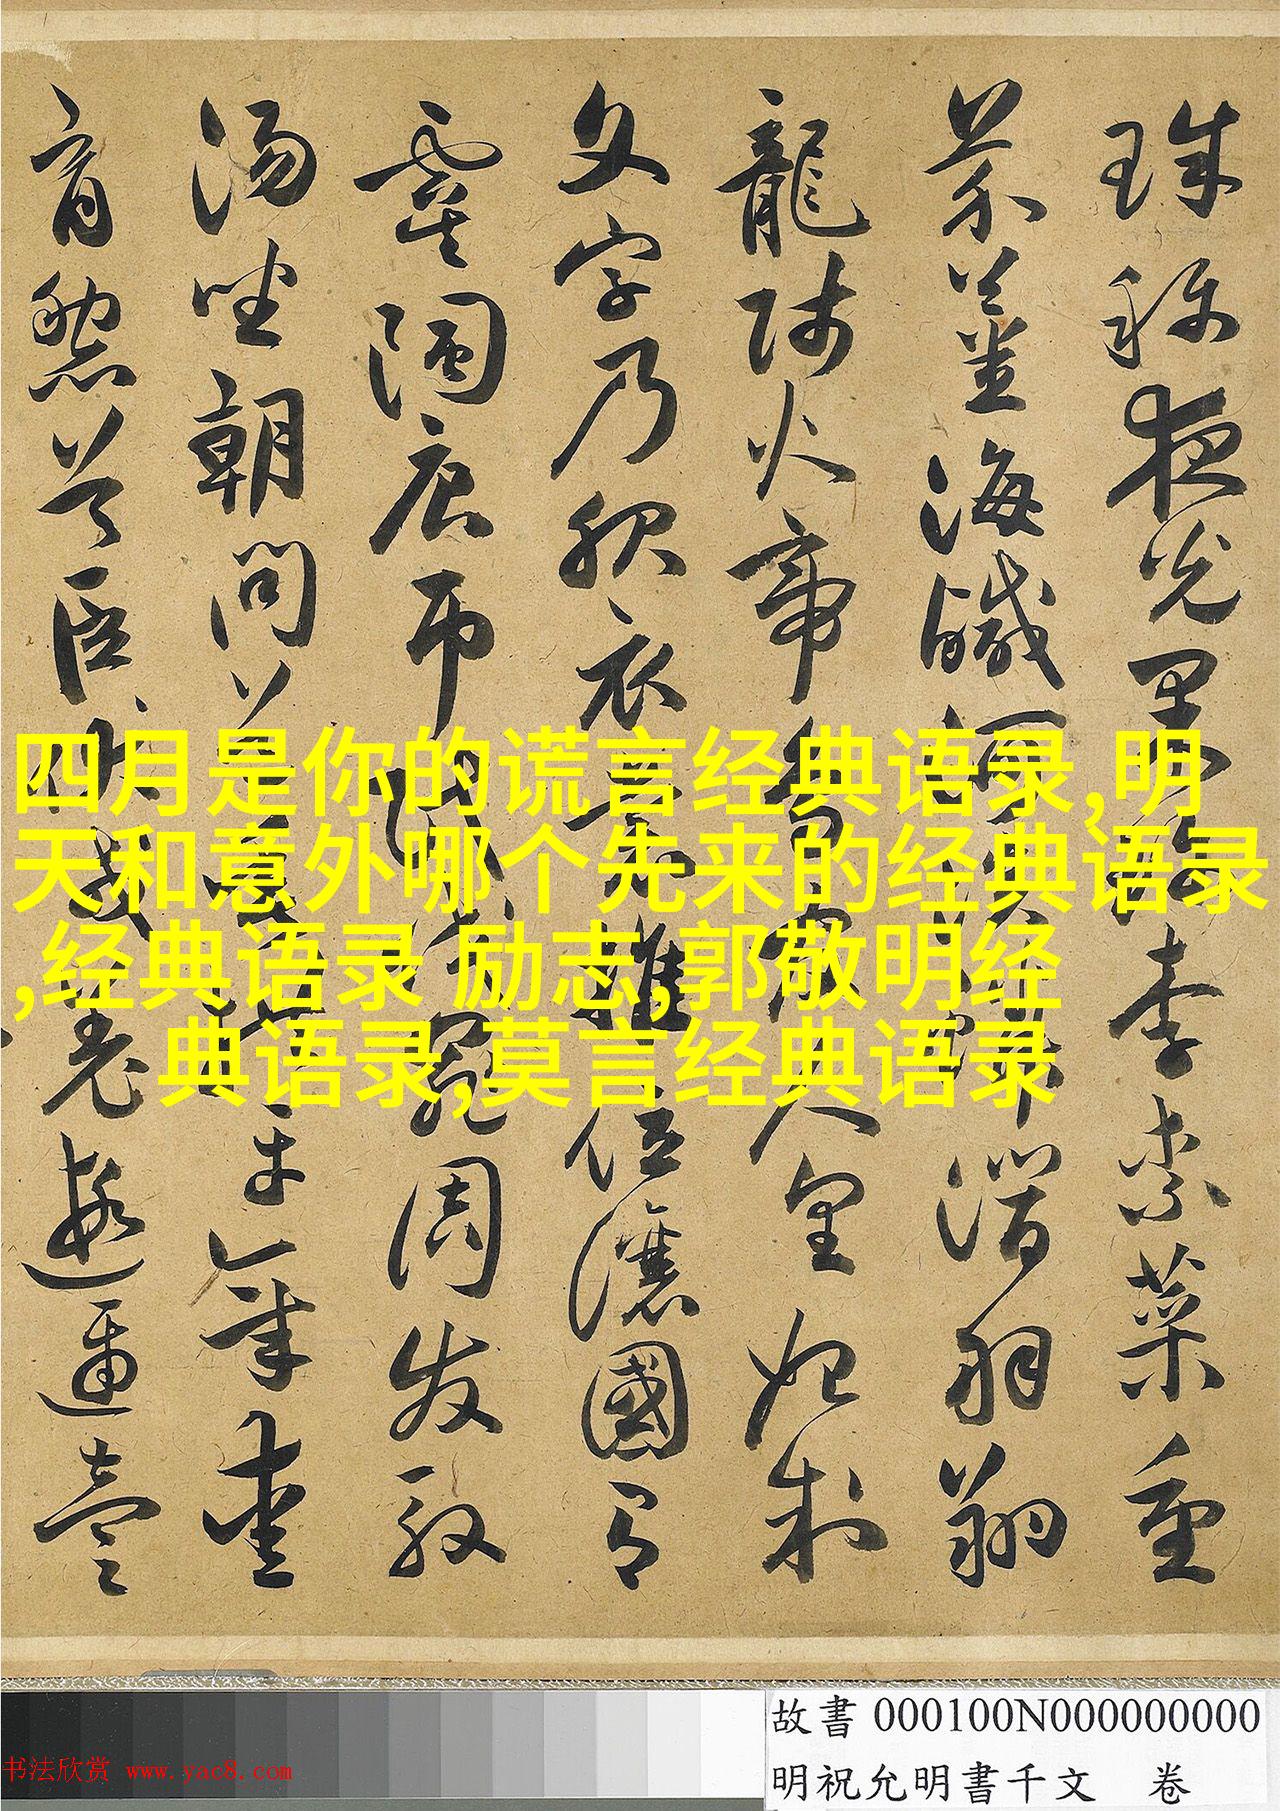 珠稱夜光果珍李柰菜重
芥薑海鹹河淡鱗潛羽翔
龍師火帝鳥官人皇始制
文字乃服衣裳推位讓國有
虞陶唐弔民伐罪周發殷
湯坐朝問道垂拱平章愛
育黎首臣伏戎羌遐邇壹
四月是你的谎言经典语录,明
天和意外哪个先来的经典语录
,经典语录 励志,郭敬明经
典语录,莫言经典语录
故書 000100N000000000
明祝允明書千文 卷
书法欣赏 www.yac8.com